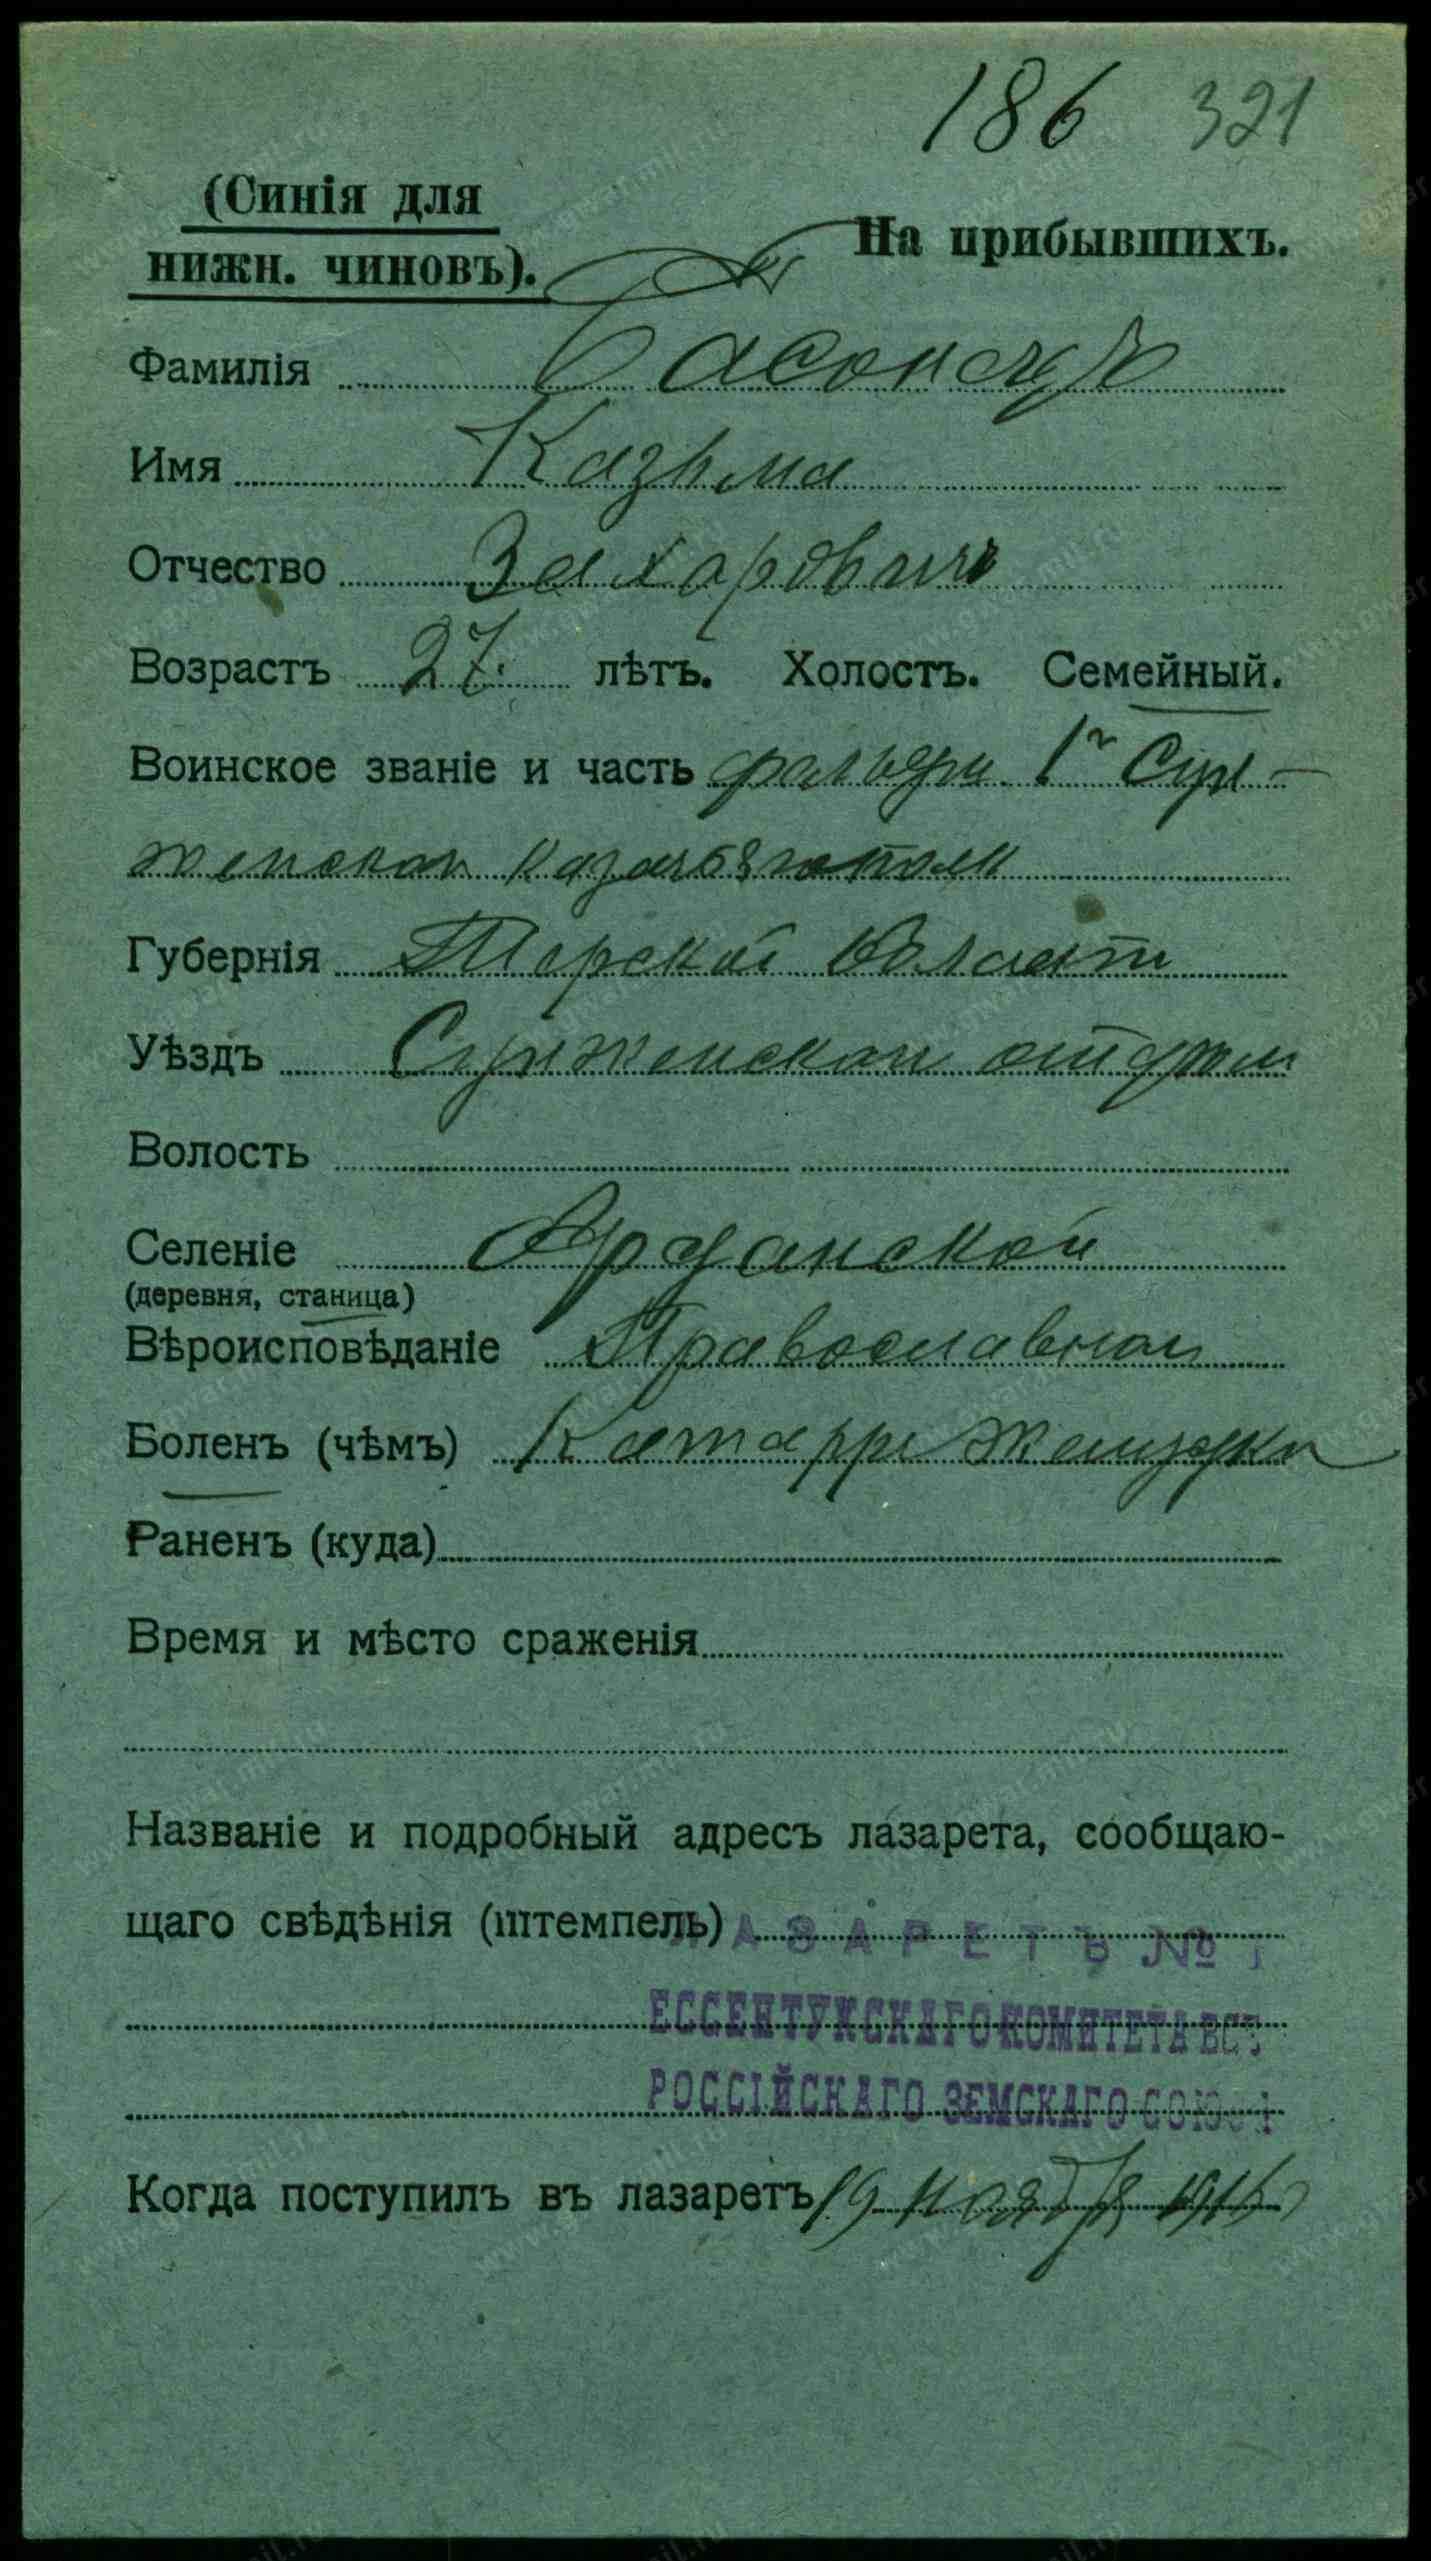 186 321
(Синія для
нижн. чиновъ).
На прибывшихъ.
Фамилія
Имя Казьма
Отчество Захаровичъ
Возрастъ 27. лѣтъ. Холостъ. Семейный.
Воинское званіе и часть 1го Сун-
женскаи казачья полк
Губернія Терской Области
Уѣздъ Сунженскаи отдѣл
Волость
Селеніе Ардонской
(деревня, станица)
Вѣроисповѣданіе Православнаи
Боленъ (чѣмъ) Катарръ желудка
Раненъ (куда)
Время и мѣсто сраженія
Названіе и подробный адресъ лазарета, сообщаю-
щаго свѣдѣнія (штемпель) ЛАЗАРЕТЪ № 1
ЕССЕНТУКСКАГО КОМИТЕТА ВСЕ
РОССІЙСКАГО ЗЕМСКАГО СОЮЗА
Когда поступилъ въ лазаретъ 19 ноября